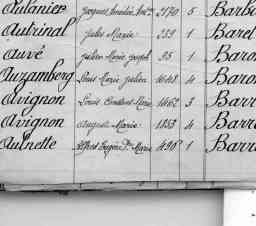 Aulanier Jacques 2170 5 Barbo
Autrinal Jules Marie 239 1 Baret
Auvé Julien Marie Joseph 95 1 Baron
Auzamberg Louis Marie Julien 1648 4 Baro
Avignon Louis Constant Marie 1462 3 Barr
Avignon Auguste Marie 1853 4 Barra
Aulnette Alfred Eugène Marie 498 1 Barra